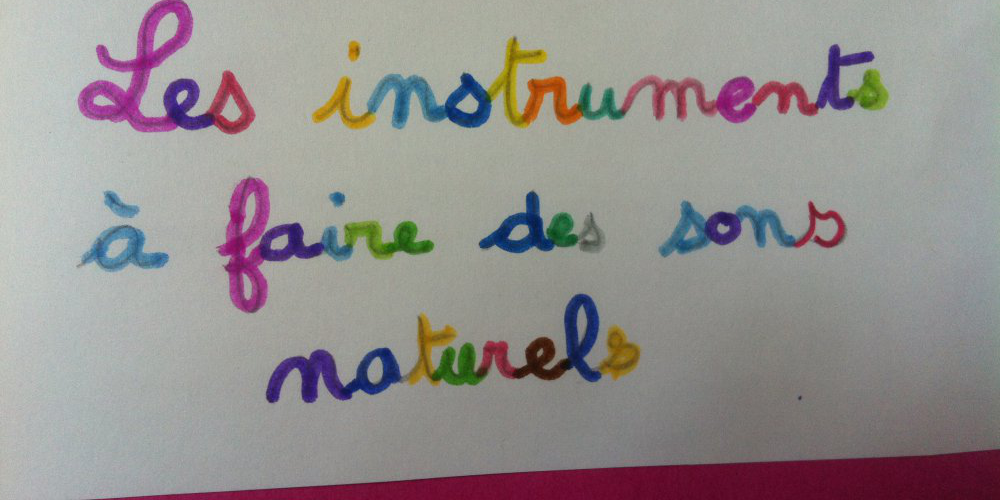 Les instruments
à faire des sons
naturels